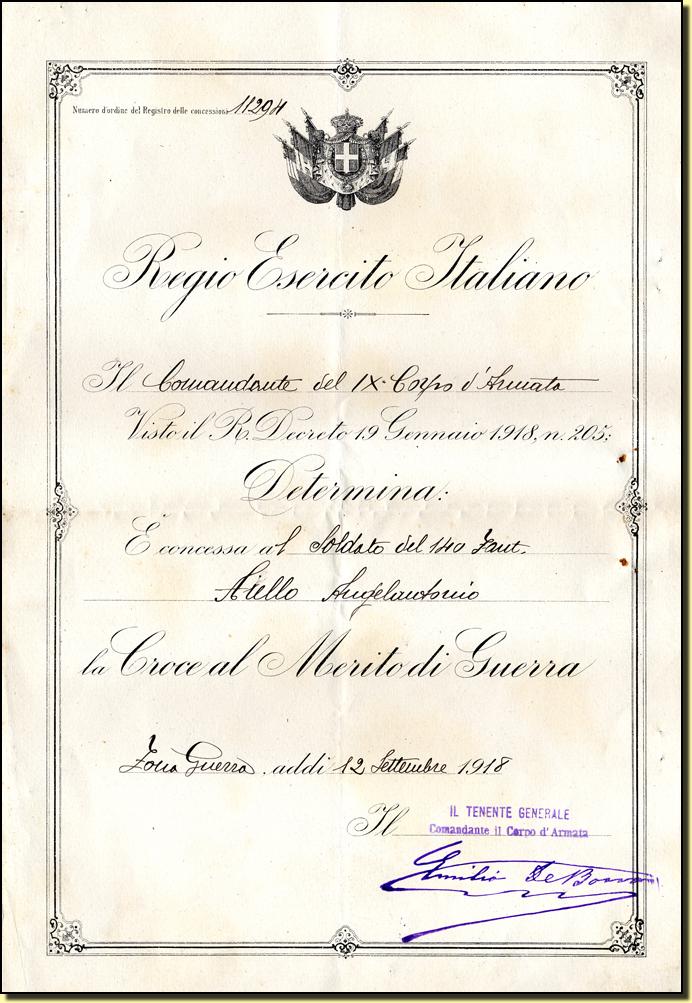 Numero d'ordine del Registro delle concessioni 11294
Regio Esercito Italiano
Il Comandante del IX. Corpo d'Armata
Visto il R. Decreto 19 Gennaio 1918, n. 205:
Determina:
E concessa al Soldato del 140 Fant.
Aiello Angelantonio
la Croce al Merito di Guerra
Zona Guerra, addi 12 Settembre 1918
Il
IL TENENTE GENERALE
Comandante il Corpo d'Armata
Emilio De Bono